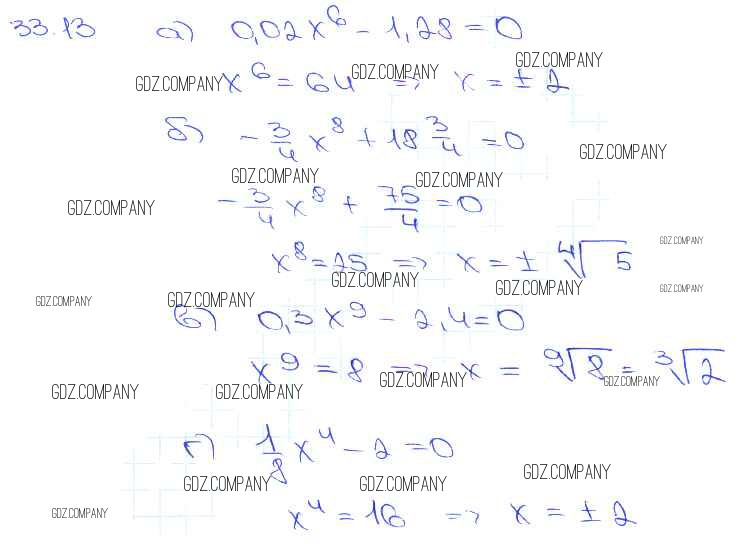 33.13 а) 0,02x⁶ - 1,28 = 0
GDZ.COMPANY
x⁶ = 64 => x = ± 2
GDZ.COMPANY GDZ.COMPANY
б) - 3/4 x⁸ + 18 3/4 = 0
GDZ.COMPANY
GDZ.COMPANY GDZ.COMPANY
- 3/4 x⁸ + 75/4 = 0
GDZ.COMPANY
GDZ.COMPANY
x⁸ = 25 => x = ± ⁴√5
GDZ.COMPANY GDZ.COMPANY GDZ.COMPANY
GDZ.COMPANY GDZ.COMPANY
в) 0,3x⁹ - 2,4 = 0
x⁹ = 8 => x = ⁹√8 = ³√2
GDZ.COMPANY GDZ.COMPANY
GDZ.COMPANY GDZ.COMPANY
г) 1/8 x⁴ - 2 = 0
GDZ.COMPANY GDZ.COMPANY GDZ.COMPANY
x⁴ = 16 => x = ± 2
GDZ.COMPANY